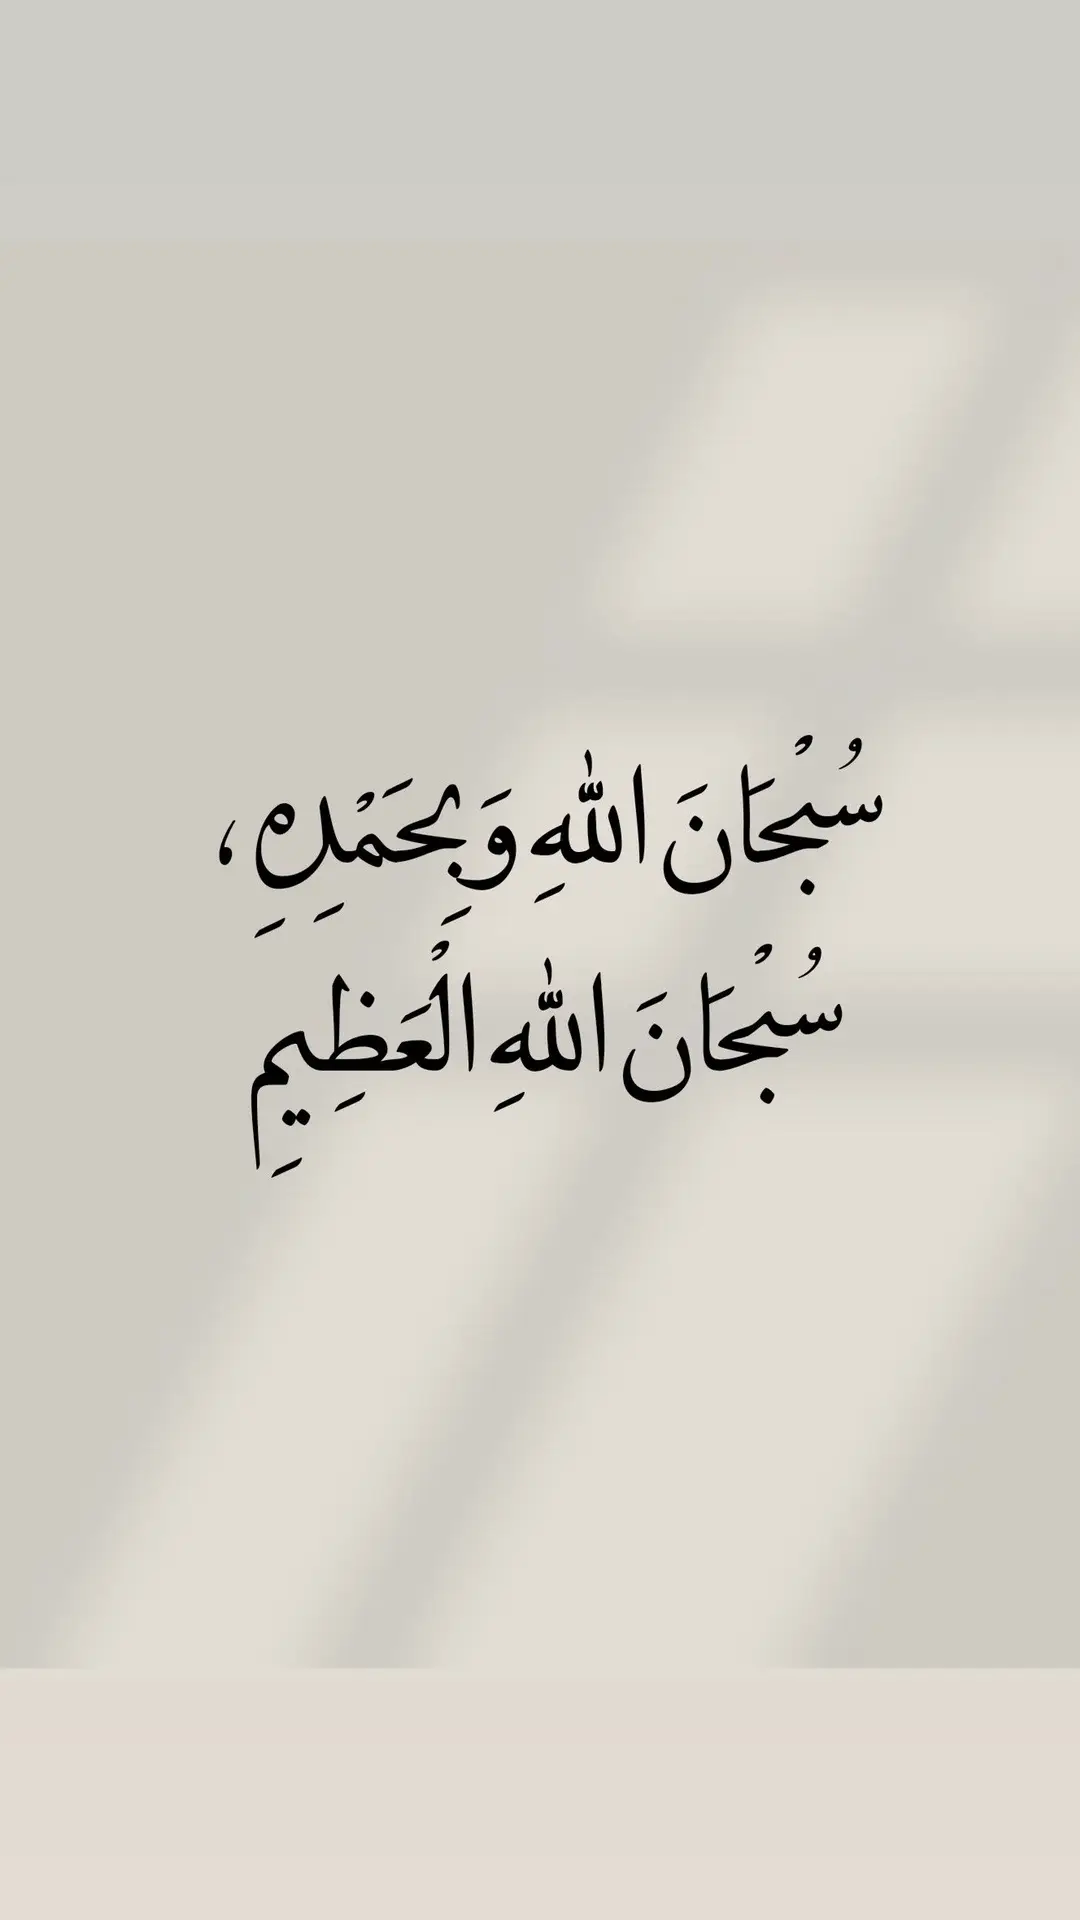 سُبْحَانَ اللهِ وَبِحَمْدِهِ،
سُبْحَانَ اللهِ الْعَظِيمِ